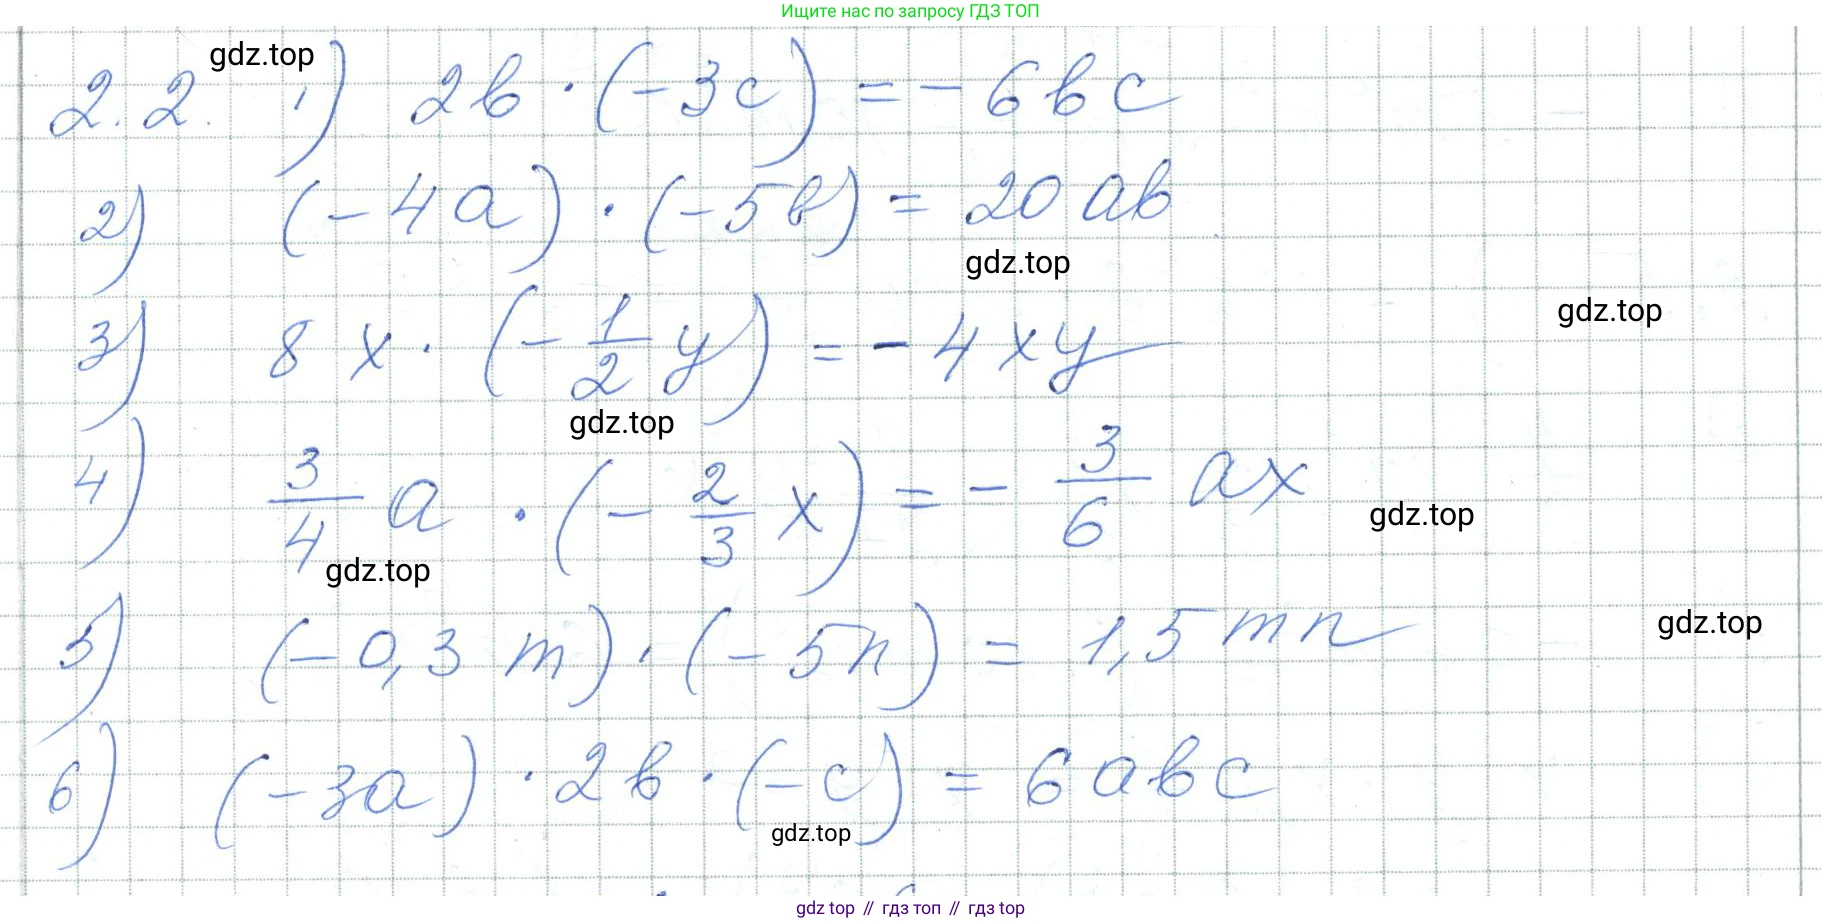 Ищите нас по запросу ГДЗ ТОП
gdz.top
2.2. 1) 2b · (-3c) = -6bc
2) (-4a) · (-5b) = 20ab
gdz.top
gdz.top
3) 8x · (-1/2 y) = -4xy
gdz.top
4) 3/4 a · (-2/3 x) = -3/6 ax
gdz.top
gdz.top
5) (-0,3m) · (-5n) = 1,5mn
gdz.top
6) (-3a) · 2b · (-c) = 6abc
gdz.top
gdz.top // гдз топ // гдз.top